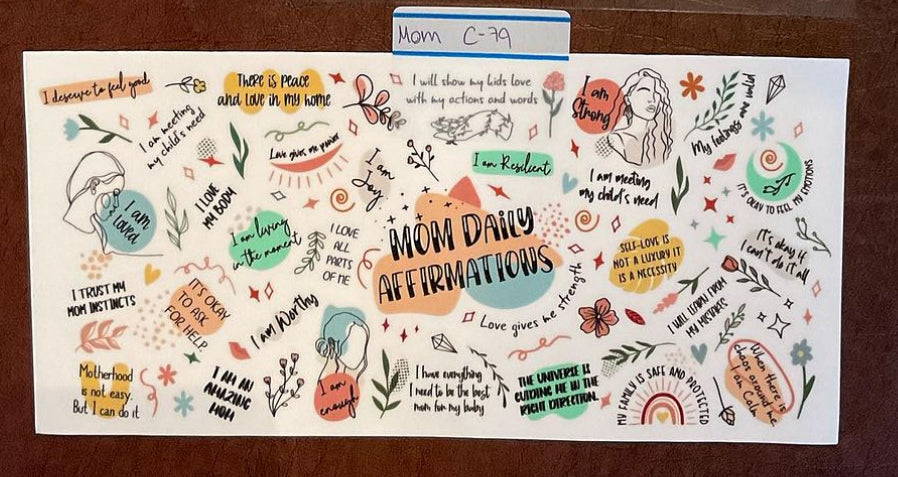 Mom C-79
I deserve to feel good
I am meeting
my child's need
THERE IS PEACE
AND LOVE IN MY HOME
I will show my kids love
with my actions and words
I am
Strong
My feelings are valid
I am
loved
I LOVE
MY BODY
Love gives me power
I am
Joy
I am Resilient
I am meeting
my child's need
IT'S OKAY TO FEEL MY EMOTIONS
I am living
in the moment
I LOVE
ALL
PARTS
OF ME
MOM DAILY
AFFIRMATIONS
SELF-LOVE IS
NOT A LUXURY IT
IS A NECESSITY
It's okay if
I can't do it all
I TRUST MY
MOM INSTINCTS
IT'S OKAY
TO ASK
FOR HELP.
I am Worthy
Love gives me strength
I WILL LEARN FROM
MY MISTAKES
Motherhood
is not easy.
But I can do it
I AM AN
AMAZING
MOM
I am
enough
I have everything
I need to be the best
mom for my baby
THE UNIVERSE IS
GUIDING ME IN THE
RIGHT DIRECTION.
MY FAMILY IS SAFE AND PROTECTED
When there is
chaos around me
I am Calm